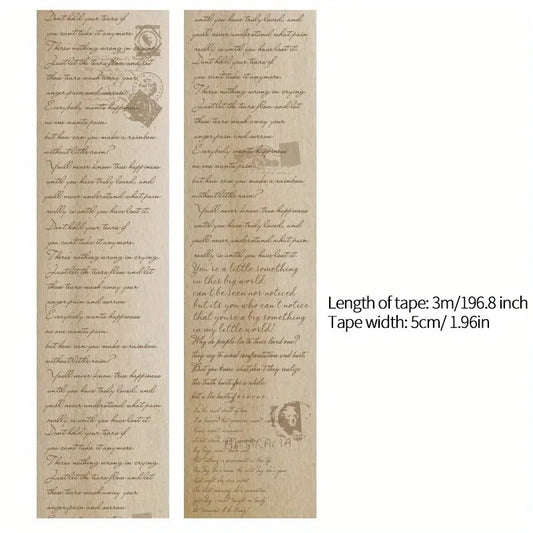 Don't hold your tears if
you can't take it anymore.
There's nothing wrong in crying.
Just let the tears flow and let
those tears wash away your
anger,pain and sorrow
Everybody wants happiness
no one wants pain.
but how can you make a rainbow
without little rain?
You'll never know true happiness
until you have truly loved, and
you'll never understand what pain
really is until you have lost it.
Don't hold your tears if
you can't take it anymore.
There's nothing wrong in crying.
Just let the tears flow and let
those tears wash away your
anger,pain and sorrow
Everybody wants happiness
no one wants pain.
but how can you make a rainbow
without little rain?
You'll never know true happiness
until you have truly loved, and
you'll never understand what pain
really is until you have lost it.
Don't hold your tears if
you can't take it anymore.
There's nothing wrong in crying.
Just let the tears flow and let
those tears wash away your
anger,pain and sorrow
until you have truly loved, and
you'll never understand what pain
really is until you have lost it.
Don't hold your tears if
you can't take it anymore.
There's nothing wrong in crying.
Just let the tears flow and let
those tears wash away your
anger,pain and sorrow
Everybody wants happiness
no one wants pain.
but how can you make a rainbow
without little rain?
You'll never know true happiness
until you have truly loved, and
you'll never understand what pain
really is until you have lost it.
You're a little something
in this big world.
can't be seen nor noticed
but it's you who can't notice
that you're a big something
in my little world!
Why do people lie to their loved one?
they say to avoid confrontation and hurt.
But you know what else? They realize
the truth hurts for a while
but a lie hurts
Length of tape: 3m/196.8 inch
Tape width: 5cm/ 1.96in